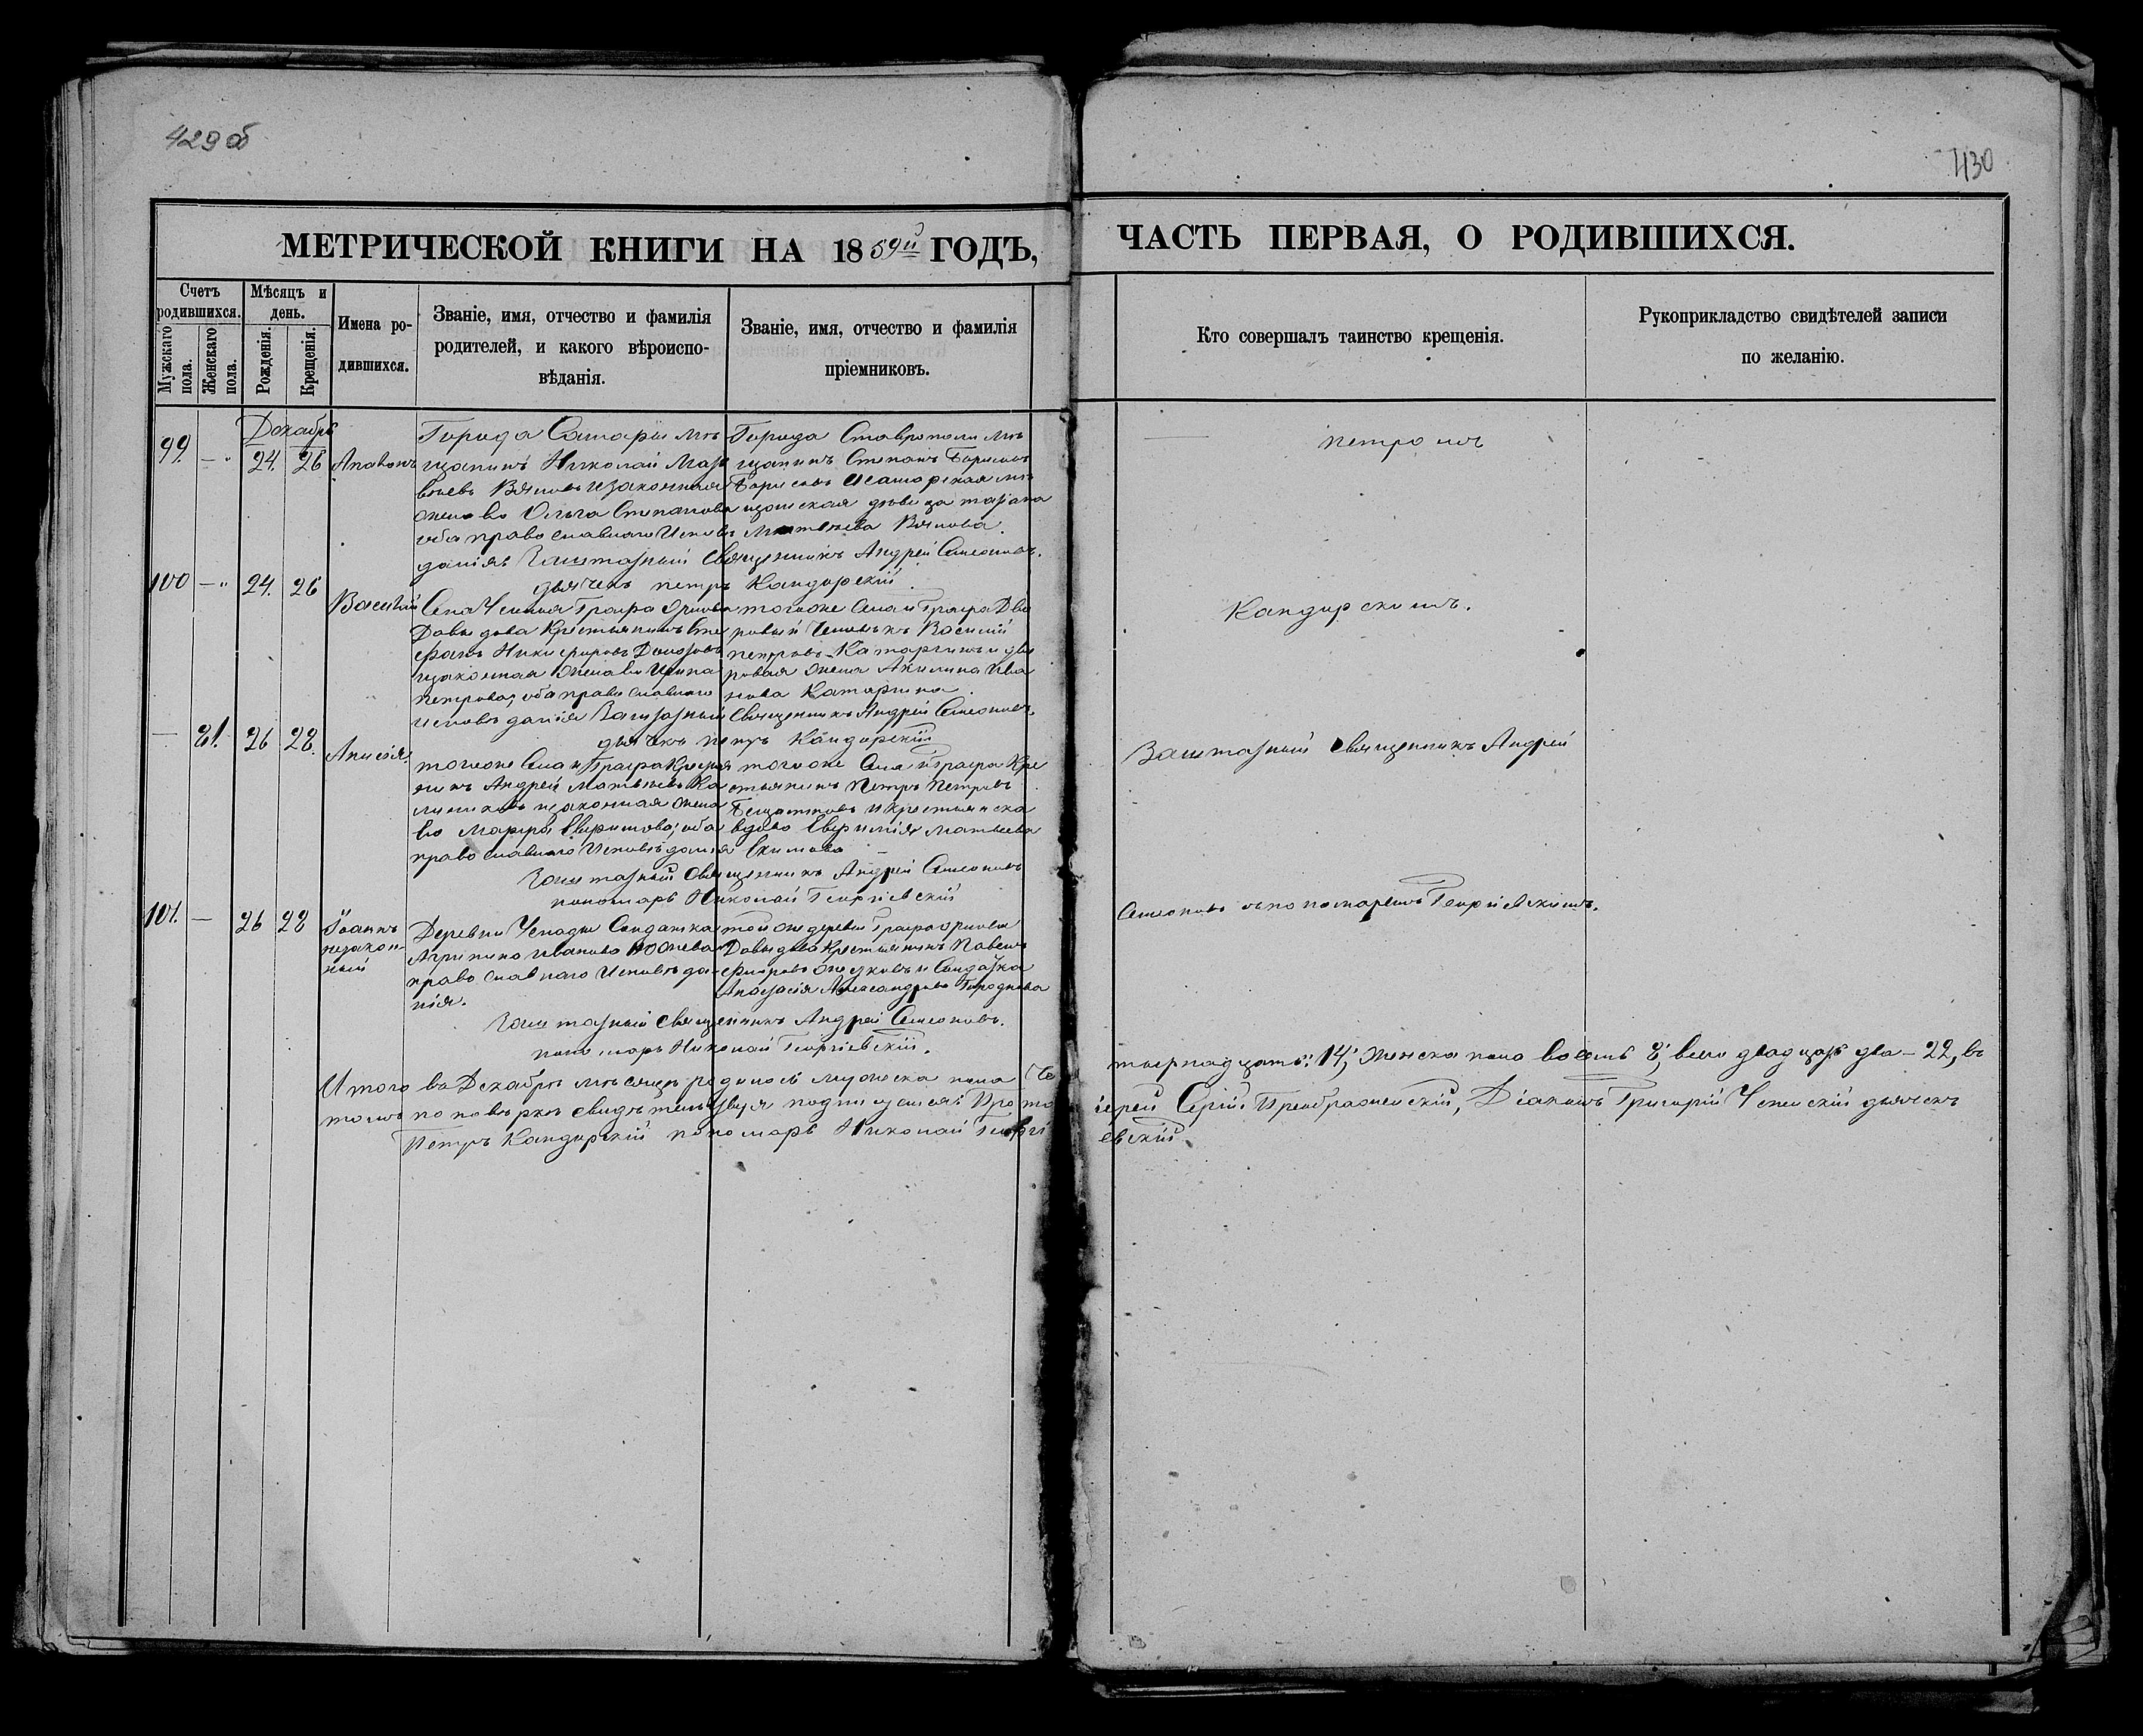 429 об
430
МЕТРИЧЕСКОЙ КНИГИ НА 1859й ГОДЪ,
ЧАСТЬ ПЕРВАЯ, О РОДИВШИХСЯ.
Счетъ родившихся.
Мужскаго пола.
Женскаго пола.
Мѣсяцъ и день.
Рожденія.
Крещенія.
Имена родившихся.
Званіе, имя, отчество и фамилія
родителей, и какого вѣроиспо-
вѣданія.
Званіе, имя, отчество и фамилія
пріемниковъ.
Кто совершалъ таинство крещенія.
Рукоприкладство свидѣтелей записи
по желанію.
Декабрь
99. — 24. 26
Города Самары мѣ
щанинъ Николай Мат
вѣевъ и законная
жена во Ольга Степанова
оба православнаго Исповѣ
данія
Города Ставрополи мѣ
щанинъ Степанъ Борисовъ
Борисовъ и Самарская мѣ
щанская дѣвица
Матвѣева
Заштатный Священникъ Андрей Симеоновъ.
дьячекъ петръ Кандорскій
петромъ
100 — 24. 26
Василій
Села Графа Орлова
Давыдова Крестьянинъ Сте
фанъ Никифоровъ
и законная жена во Ирина
Петрова, оба православнаго
исповѣданія
тогоже Села и Графа Дво
ровый человѣкъ Василій
петровъ Катаргинъ и дво
ровая жена Акилина Ива
нова Катаргина.
Заштатный Священникъ Андрей Симеоновъ
дьячекъ петръ Кандорскій
Кандорскимъ.
— 81. 26 28.
Анисія.
тогоже Села и Графа Крестья
нинъ Андрей Матвѣевъ Ка
линиковъ и законная жена
во Марфа Ефимова; оба
православнаго Исповѣданія
тогоже Села и Графа Кре
стьянинъ Петръ Петровъ
и крестьянска
вдова Евфимія Матвѣева
Екимова
Заштатный Священникъ Андрей Симеоновъ
пономарь Николай Георгіевскій
Заштатный Священникъ Андрей
Симеоновъ съ пономаремъ Георгіевскимъ.
101. — 26 28
Іоаннъ
незакон-
ный
Деревни Солдатка
Агрипина Иванова
православнаго Исповѣда-
нія.
той же деревни Графа Орлова
Давыдова Крестьянинъ Павелъ
и Солдатка
Анастасія Александрова
Заштатный Священникъ Андрей Симеоновъ.
пономарь Николай Георгіевскій.
Итого въ Декабрѣ мѣсяцѣ родилось мужеска пола Че
тырнадцать: 14; Женска пола восемь 8; всего двадцать два — 22, въ
томъ по повѣркѣ свидѣтельствуя подписуемся: Прото
іерей Сергій Преображенскій, Діаконъ Григорій дьячекъ
Петръ Кандорскій пономарь Николай Георгі
евскій.